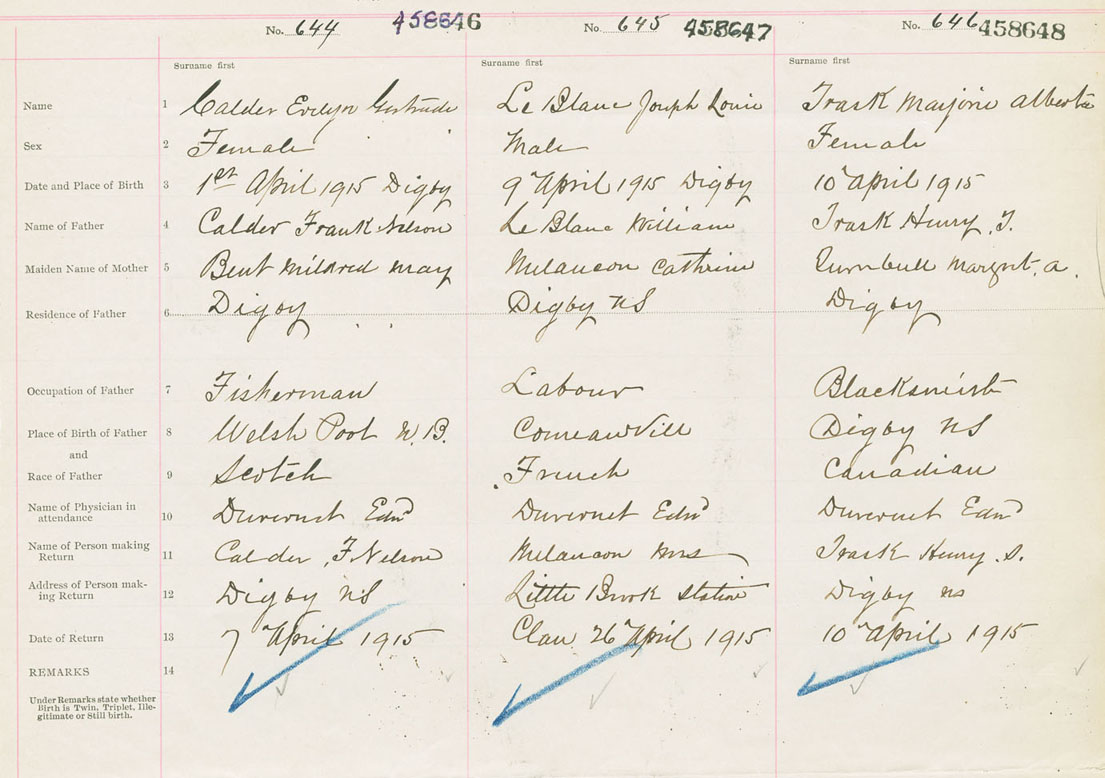 No. 644 458646 No. 645 458647 No. 646 458648
Surname first Surname first Surname first
Name 1 Calder Evelyn Gertrude Le Blanc Joseph Louie Trask Marjorie Alberta
Sex 2 Female Male Female
Date and Place of Birth 3 1st April 1915 Digby 9 April 1915 Digby 10 April 1915
Name of Father 4 Calder Frank Nelson Le Blanc William Trask Henry
Maiden Name of Mother 5 Bent Mildred May Melancon Cathrine Turnbull Margret. A.
Residence of Father 6 Digby Digby NS Digby
Occupation of Father 7 Fisherman Labour Blacksmith
Place of Birth of Father 8 Welsh Pool N.B. Comeauvill Digby NS
and
Race of Father 9 Scotch French Canadian
Name of Physician in
attendance 10 Duvernet Edwd Duvernet Edwd Duvernet Edwd
Name of Person making
Return 11 Calder, F. Nelson Melancon Mrs Trask Henry. S.
Address of Person mak-
ing Return 12 Digby NS Little Brook Station Digby NS
Date of Return 13 7 April 1915 Clare 26 April 1915 10 April 1915
REMARKS 14
Under Remarks state whether
Birth is Twin, Triplet, Ille-
gitimate or Still birth.